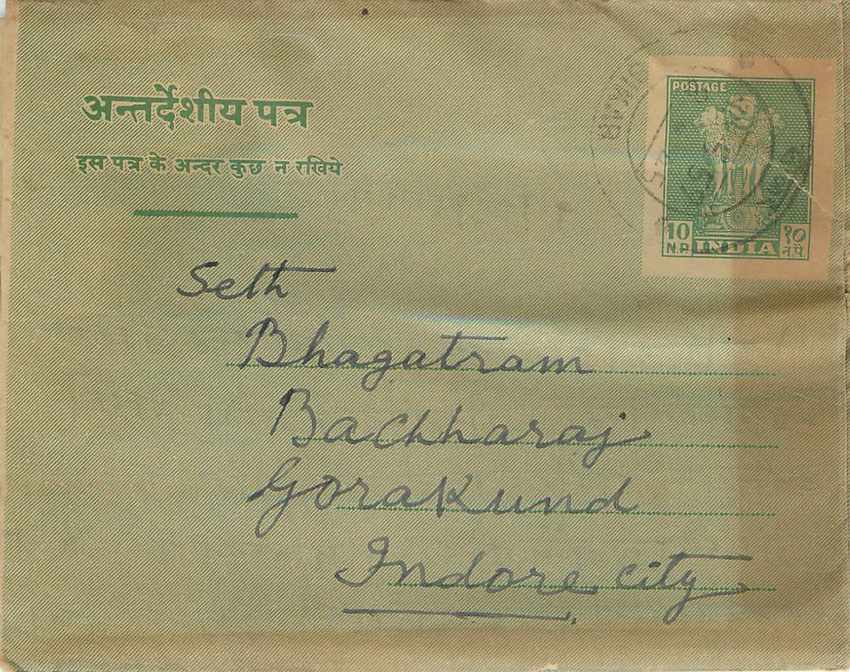 अन्तर्देशीय पत्र
इस पत्र के अन्दर कुछ न रखिये
POSTAGE
10 १०
N.P. INDIA न.पै.
Seth
Bhagatram
Bachharaj
Gorakund
Indore city